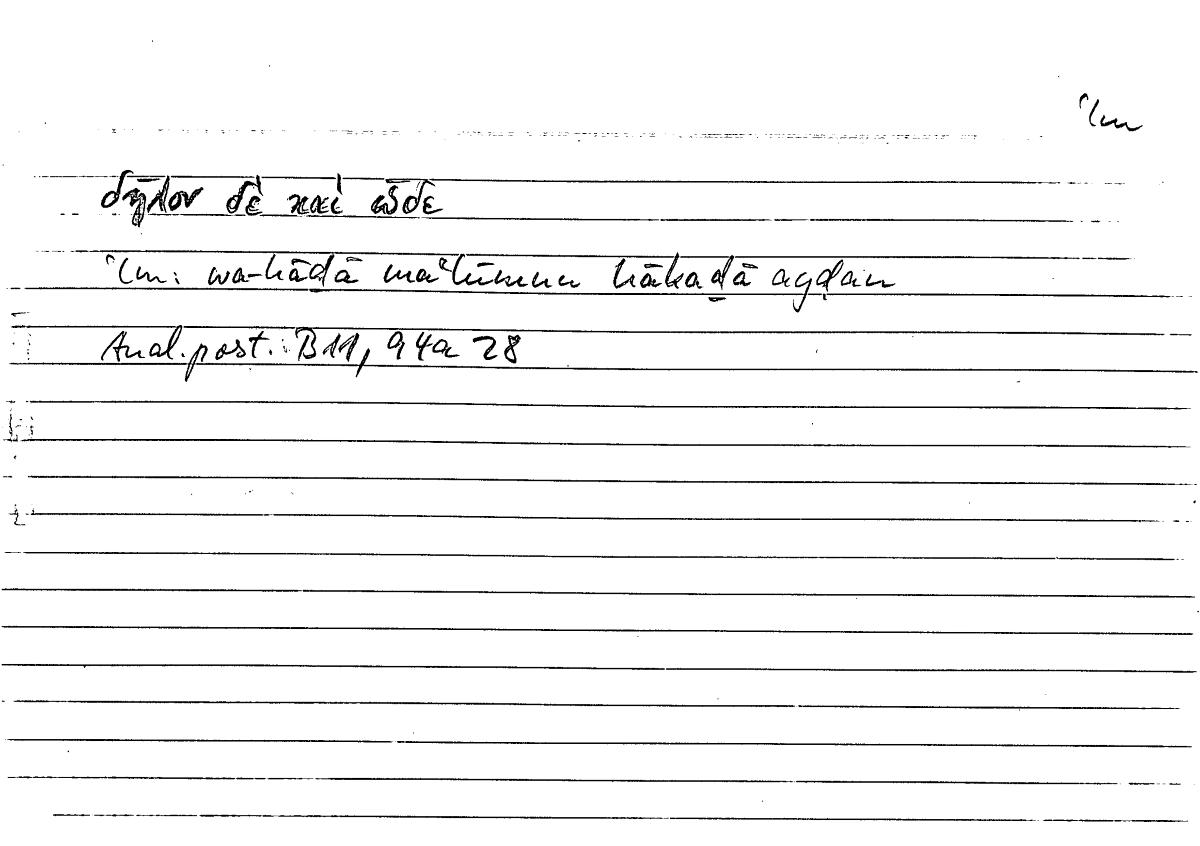 ʿlm
δῆλον δὲ καὶ ὧδε
ʿlm: wa-hāḏā maʿlūmun hākaḏā ayḍan
Anal. post. B11, 94a 28